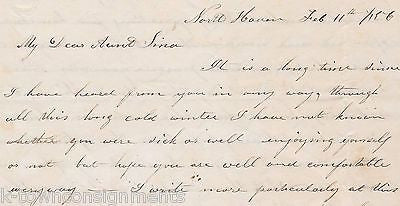 North Haven Feb 11th 1856
My Dear Aunt Sina
It is a long time since
I have heard from you in any way, through
all this long cold winter I have not known
whether you were sick or well enjoying yourself
or not but hope you are well and comfortable
every way — I write more particularly at this
k-townconsignments